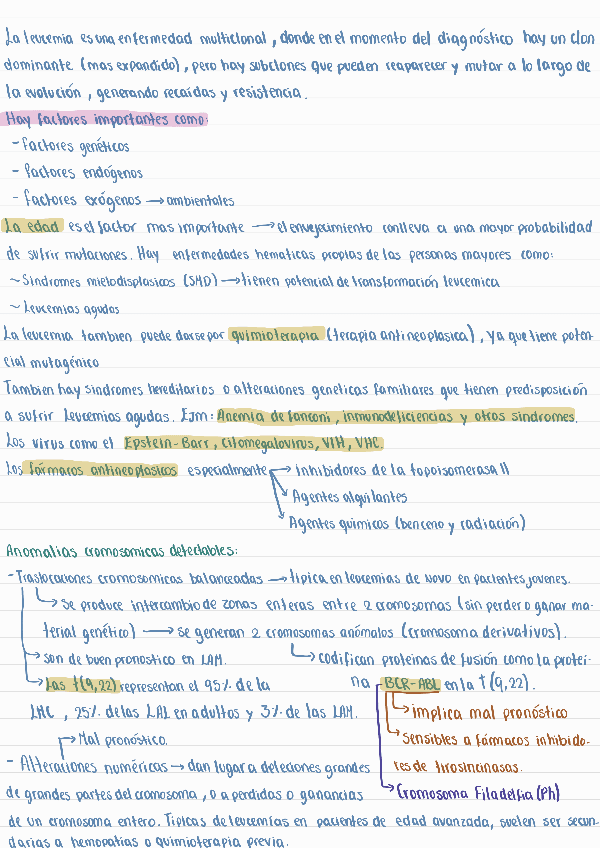 La leucemia es una enfermedad multiclonal, donde en el momento del diagnóstico hay un clon
dominante (mas expandido), pero hay subclones que pueden reaparecer y mutar a lo largo de
la evolución, generando recaídas y resistencia.
Hay factores importantes como:
- Factores genéticos
- Factores endógenos
- Factores exógenos → ambientales
La edad es el factor mas importante → el envejecimiento conlleva a una mayor probabilidad
de sufrir mutaciones. Hay enfermedades hematicas propias de las personas mayores como:
~ Sindromes mielodisplasicos (SMD) → tienen potencial de transformación leucemica
~ Leucemias agudas
La leucemia tambien puede darse por quimioterapia (terapia antineoplasica), ya que tiene poten-
cial mutagénico
Tambien hay sindromes hereditarios o alteraciones geneticas familiares que tienen predisposición
a sufrir leucemias agudas. Ejm: Anemia de fanconi, inmunodeficiencias y otros sindromes.
Los virus como el Epstein-Barr, citomegalovirus, VIH, VHC.
Los fármacos antineoplasicos especialmente → Inhibidores de la topoisomerasa II
→ Agentes alquilantes
→ Agentes químicos (benceno y radiación)
Anomalias cromosomicas detectables:
- Traslocaciones cromosomicas balanceadas → tipica en leucemias de novo en pacientes jovenes.
→ Se produce intercambio de zonas enteras entre 2 cromosomas (sin perder o ganar ma-
terial genético) → se generan 2 cromosomas anómalos (cromosoma derivativos).
→ son de buen pronostico en LAM. → codifican proteinas de fusión como la proteí-
→ Las t(9,22) representan el 95% de la na BCR-ABL en la t(9,22).
LMC, 25% de las LAL en adultos y 3% de las LAM. → implica mal pronóstico
→ Mal pronóstico. → Sensibles a fármacos inhibido-
- Alteraciones numéricas → dan lugar a deleciones grandes res de tirosincinasas.
de grandes partes del cromosoma, o a perdidas o ganancias → Cromosoma Filadelfia (Ph)
de un cromosoma entero. Tipicas de leucemias en pacientes de edad avanzada, suelen ser secun-
darias a hemopatias o quimioterapia previa.